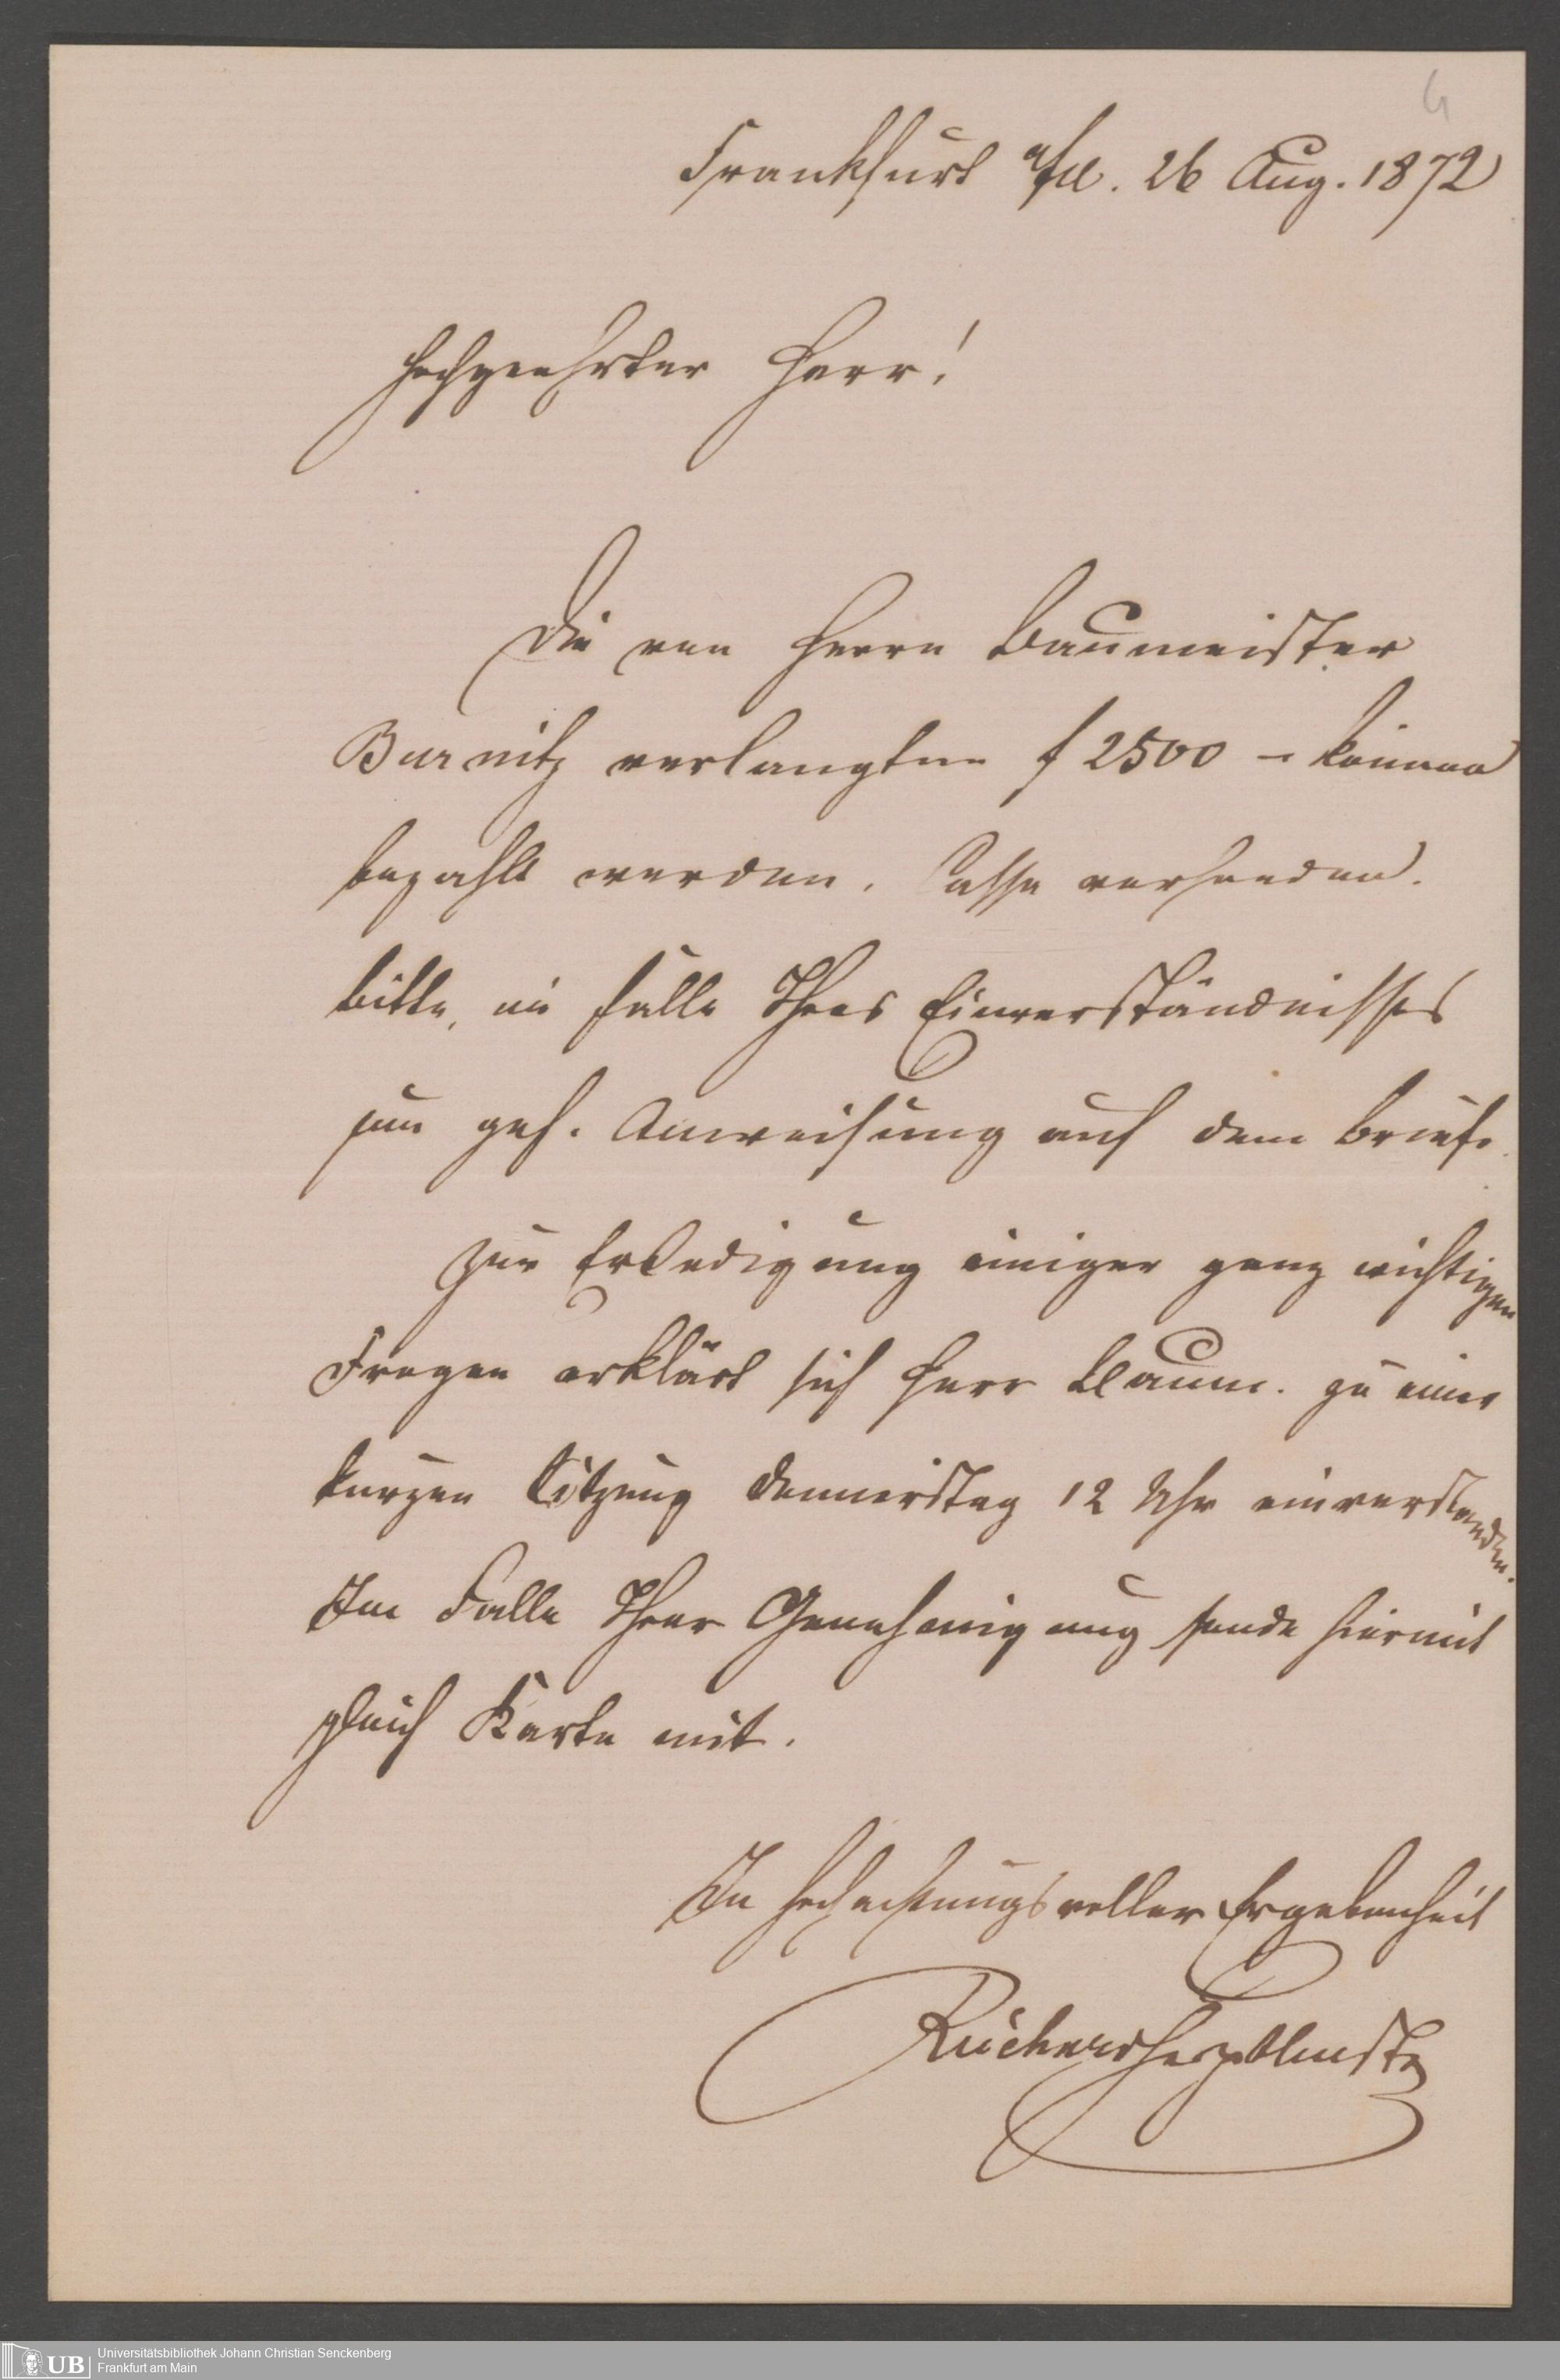 4
Frankfurt a/M. 26 Aug. 1872
Hochgeehrter Herr!
Die von Herrn Baumeister
Burnitz verlangten f 2500 – können
bezahlt werden. Casse vorhanden.
bitte, im Falle Ihres Einverständnisses
um gef. Anweisung auf dem Briefe.
Zur Erledigung einiger ganz wichtigen
Fragen erklärt sich Herr zu einer
kurzen Sitzung Donnerstag 12 Uhr einverstanden.
Im Falle Ihrer Genehmigung sende hiermit
gleich Karte mit.
In hochachtungsvoller Ergebenheit
Universitätsbibliothek Johann Christian Senckenberg
Frankfurt am Main
UB